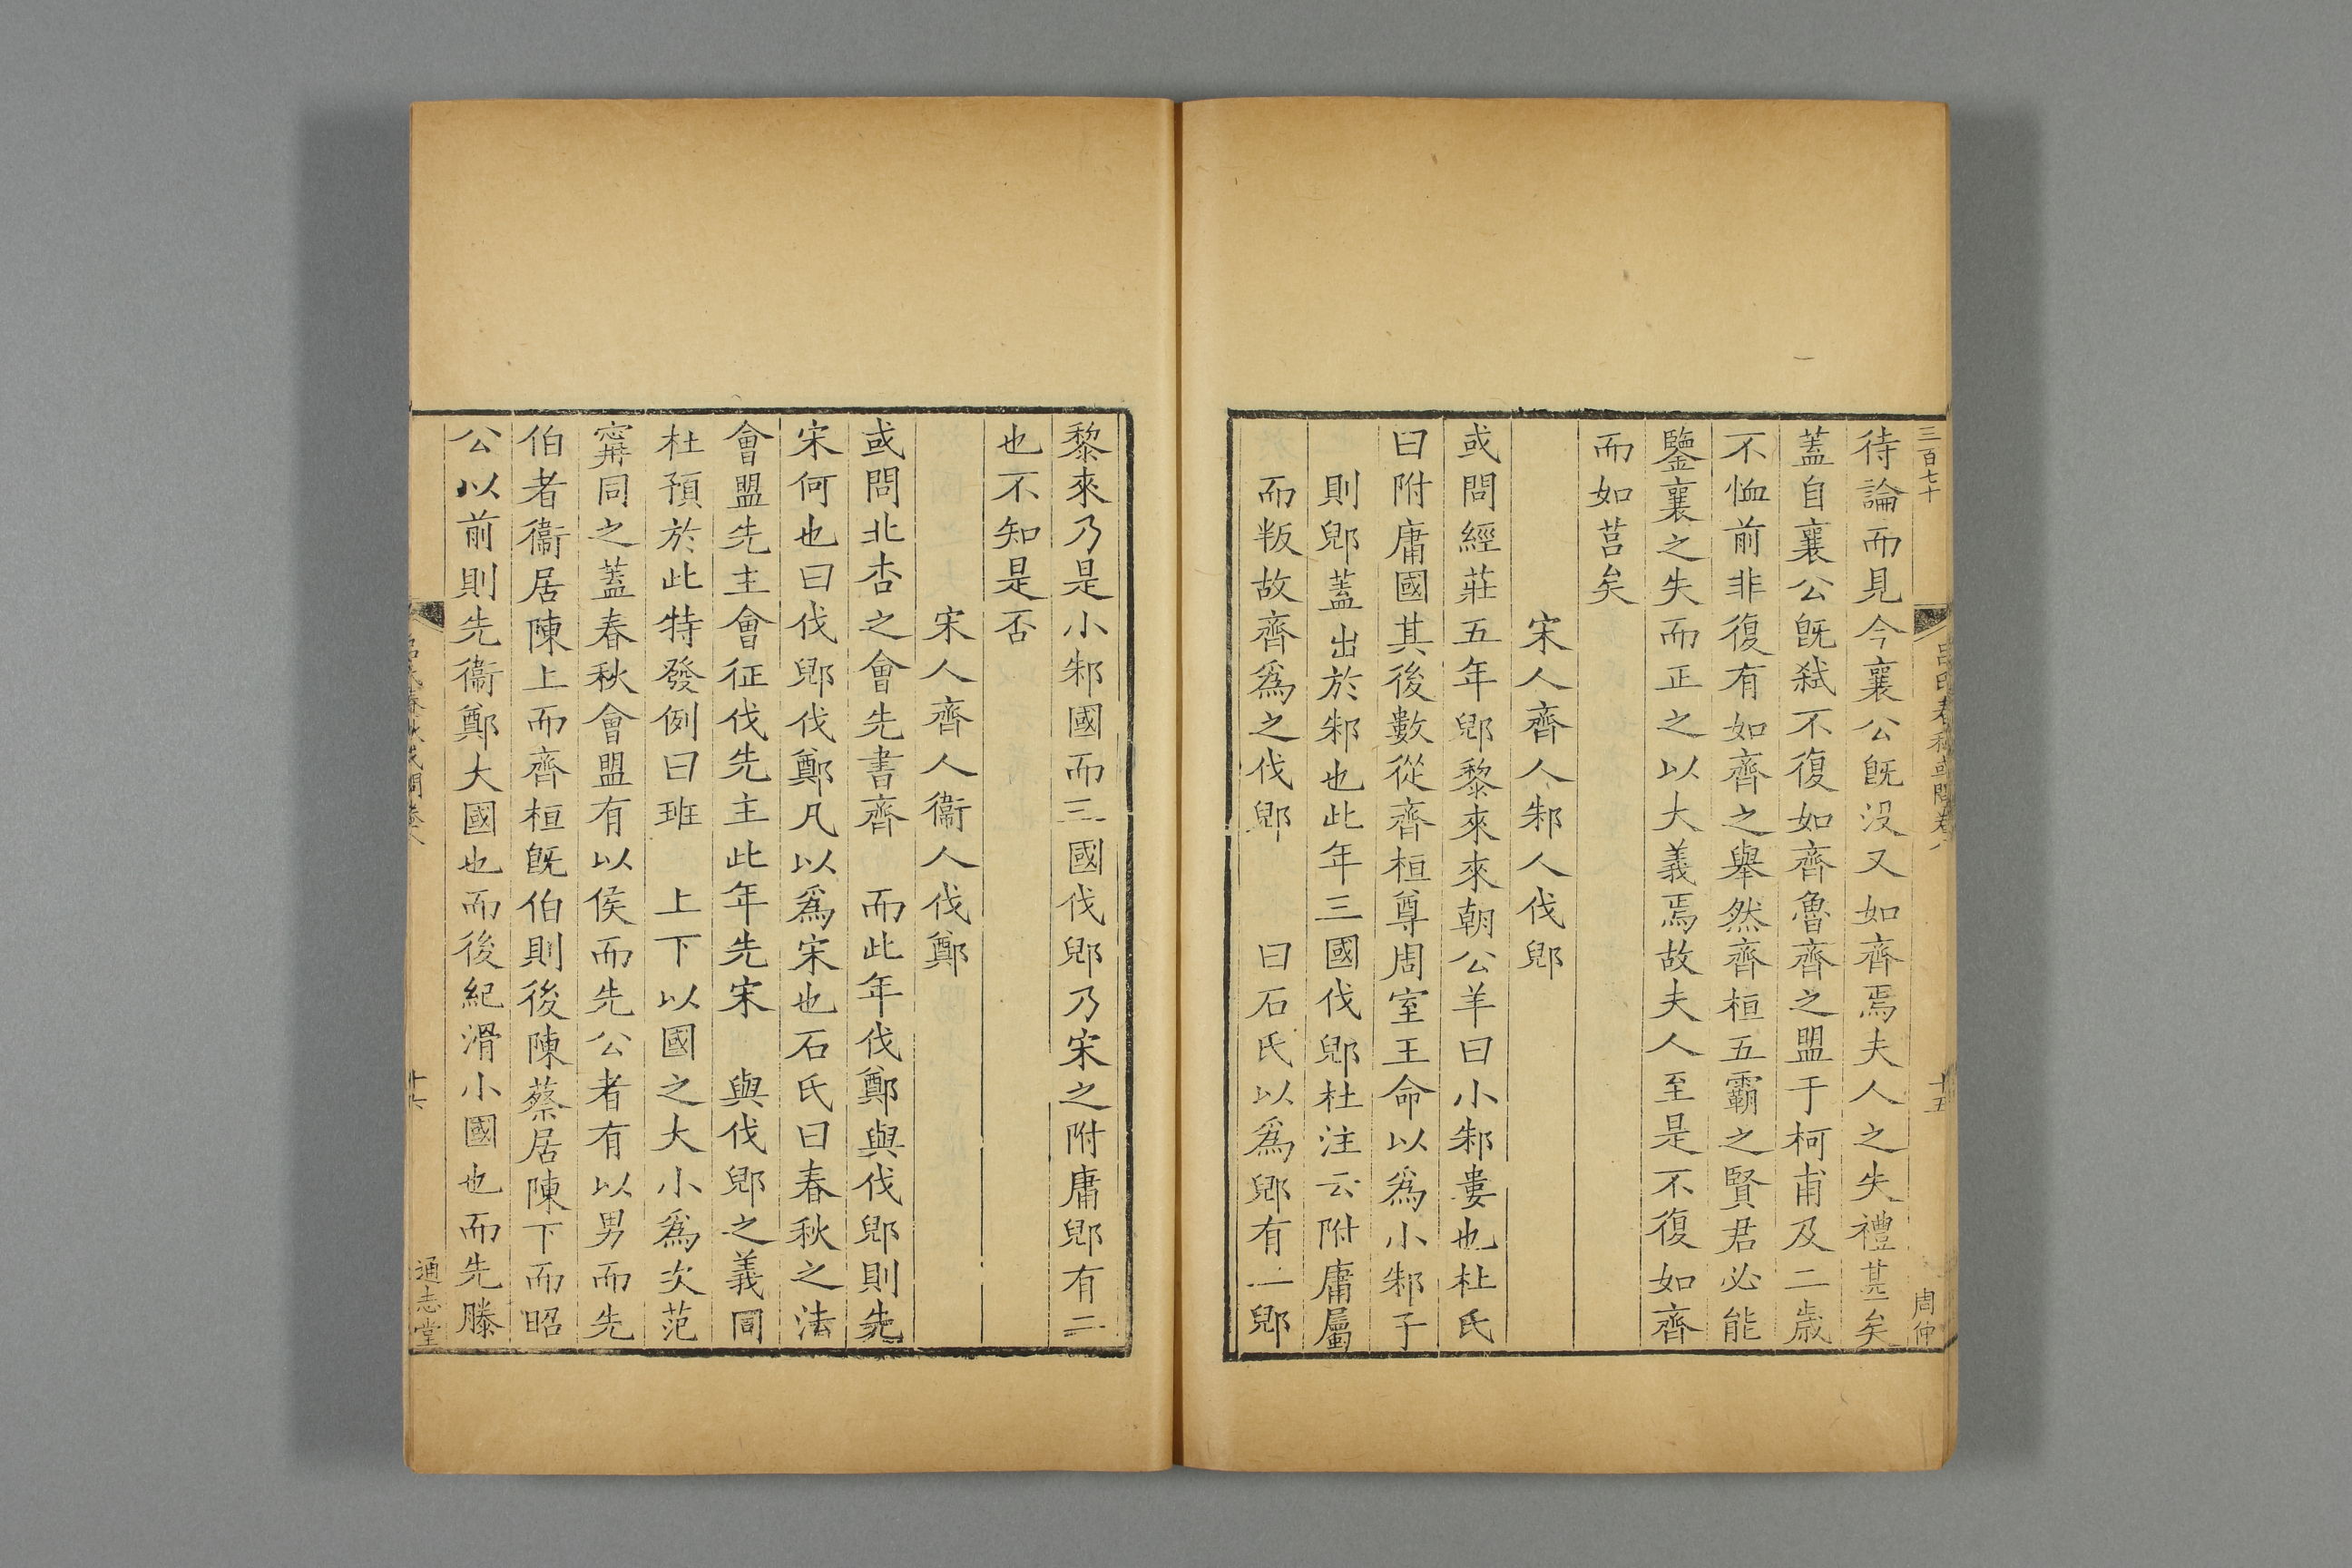 三百七十
待論而見今襄公旣没又如齊焉夫人之失禮甚矣
蓋自襄公旣弑不復如齊魯齊之盟于柯甫及二歳
不恤前非復有如齊之舉然齊桓五霸之賢君必能
鑒襄之失而正之以大義焉故夫人至是不復如齊
而如莒矣
宋人齊人邾人伐郳
或問經莊五年郳黎來來朝公羊曰小邾婁也杜氏
曰附庸國其後數從齊桓尊周室王命以爲小邾子
則郳蓋出於邾也此年三國伐郳杜注云附庸屬
而叛故齊爲之伐郳 曰石氏以爲郳有二郳
吕氏春秋或問卷八
十五
周仲
黎來乃是小邾國而三國伐郳乃宋之附庸郳有二
也不知是否
宋人齊人衞人伐鄭
或問北杏之會先書齊 而此年伐鄭與伐郳則先
宋何也曰伐郳伐鄭凡以爲宋也石氏曰春秋之法
會盟先主會征伐先主此年先宋 與伐郳之義同
杜預於此特發例曰班 上下以國之大小爲次范
甯同之蓋春秋會盟有以侯而先公者有以男而先
伯者衞居陳上而齊桓旣伯則後陳蔡居陳下而昭
公以前則先衞鄭大國也而後紀滑小國也而先滕
吕氏春秋或問卷八
十六
通志堂